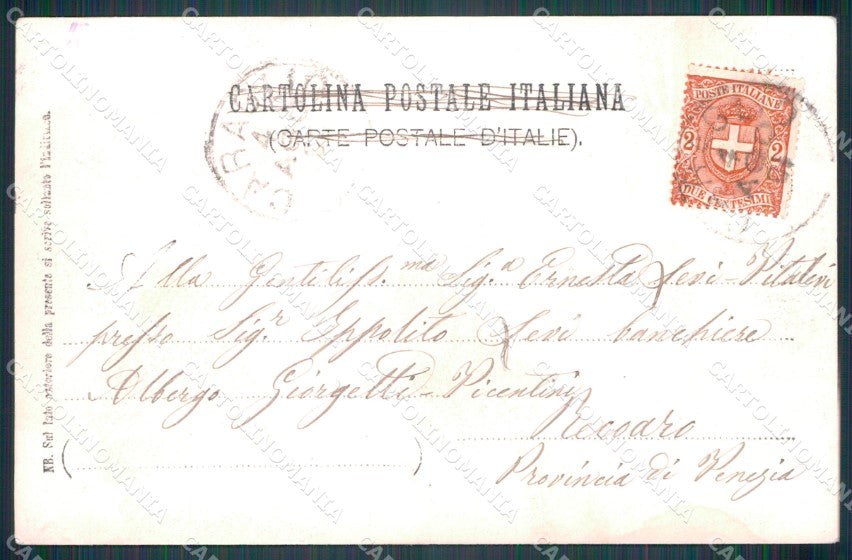 CARTOLINA POSTALE ITALIANA
(CARTE POSTALE D'ITALIE).
POSTE ITALIANE
2 2
DUE CENTESIMI
Alla Gentiliss.ma Sig.a Ernesta Levi-Vitalevi
presso Sig.r Ippolito Levi banchiere
Albergo Giorgetti-Vicentini
Recoaro
Provincia di Venezia
NB. Sul lato anteriore della presente si scrive soltanto l'indirizzo.
CARTOLINOMANIA